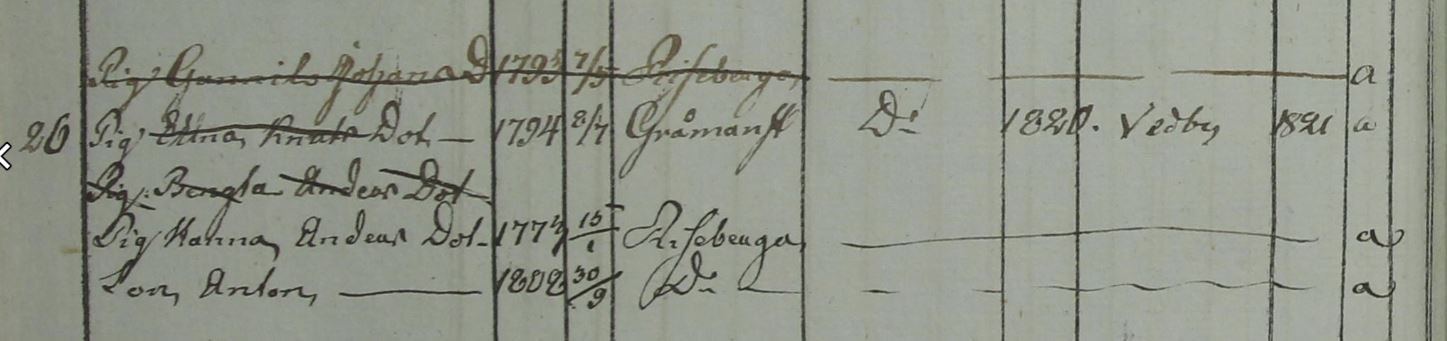 Pig Gunnila Johans D 1793 7/5 Riseberga, a
26 Pig Elna, Knuts Dot. 1794 8/7 Gråmanst Do 1820. Vedby 1821 a
Pig. Bengta Anders Dot
Pig Hanna, Anders Dot. 177 15/1 Riseberga a
Son, Anton, 1808 30/9 Do a